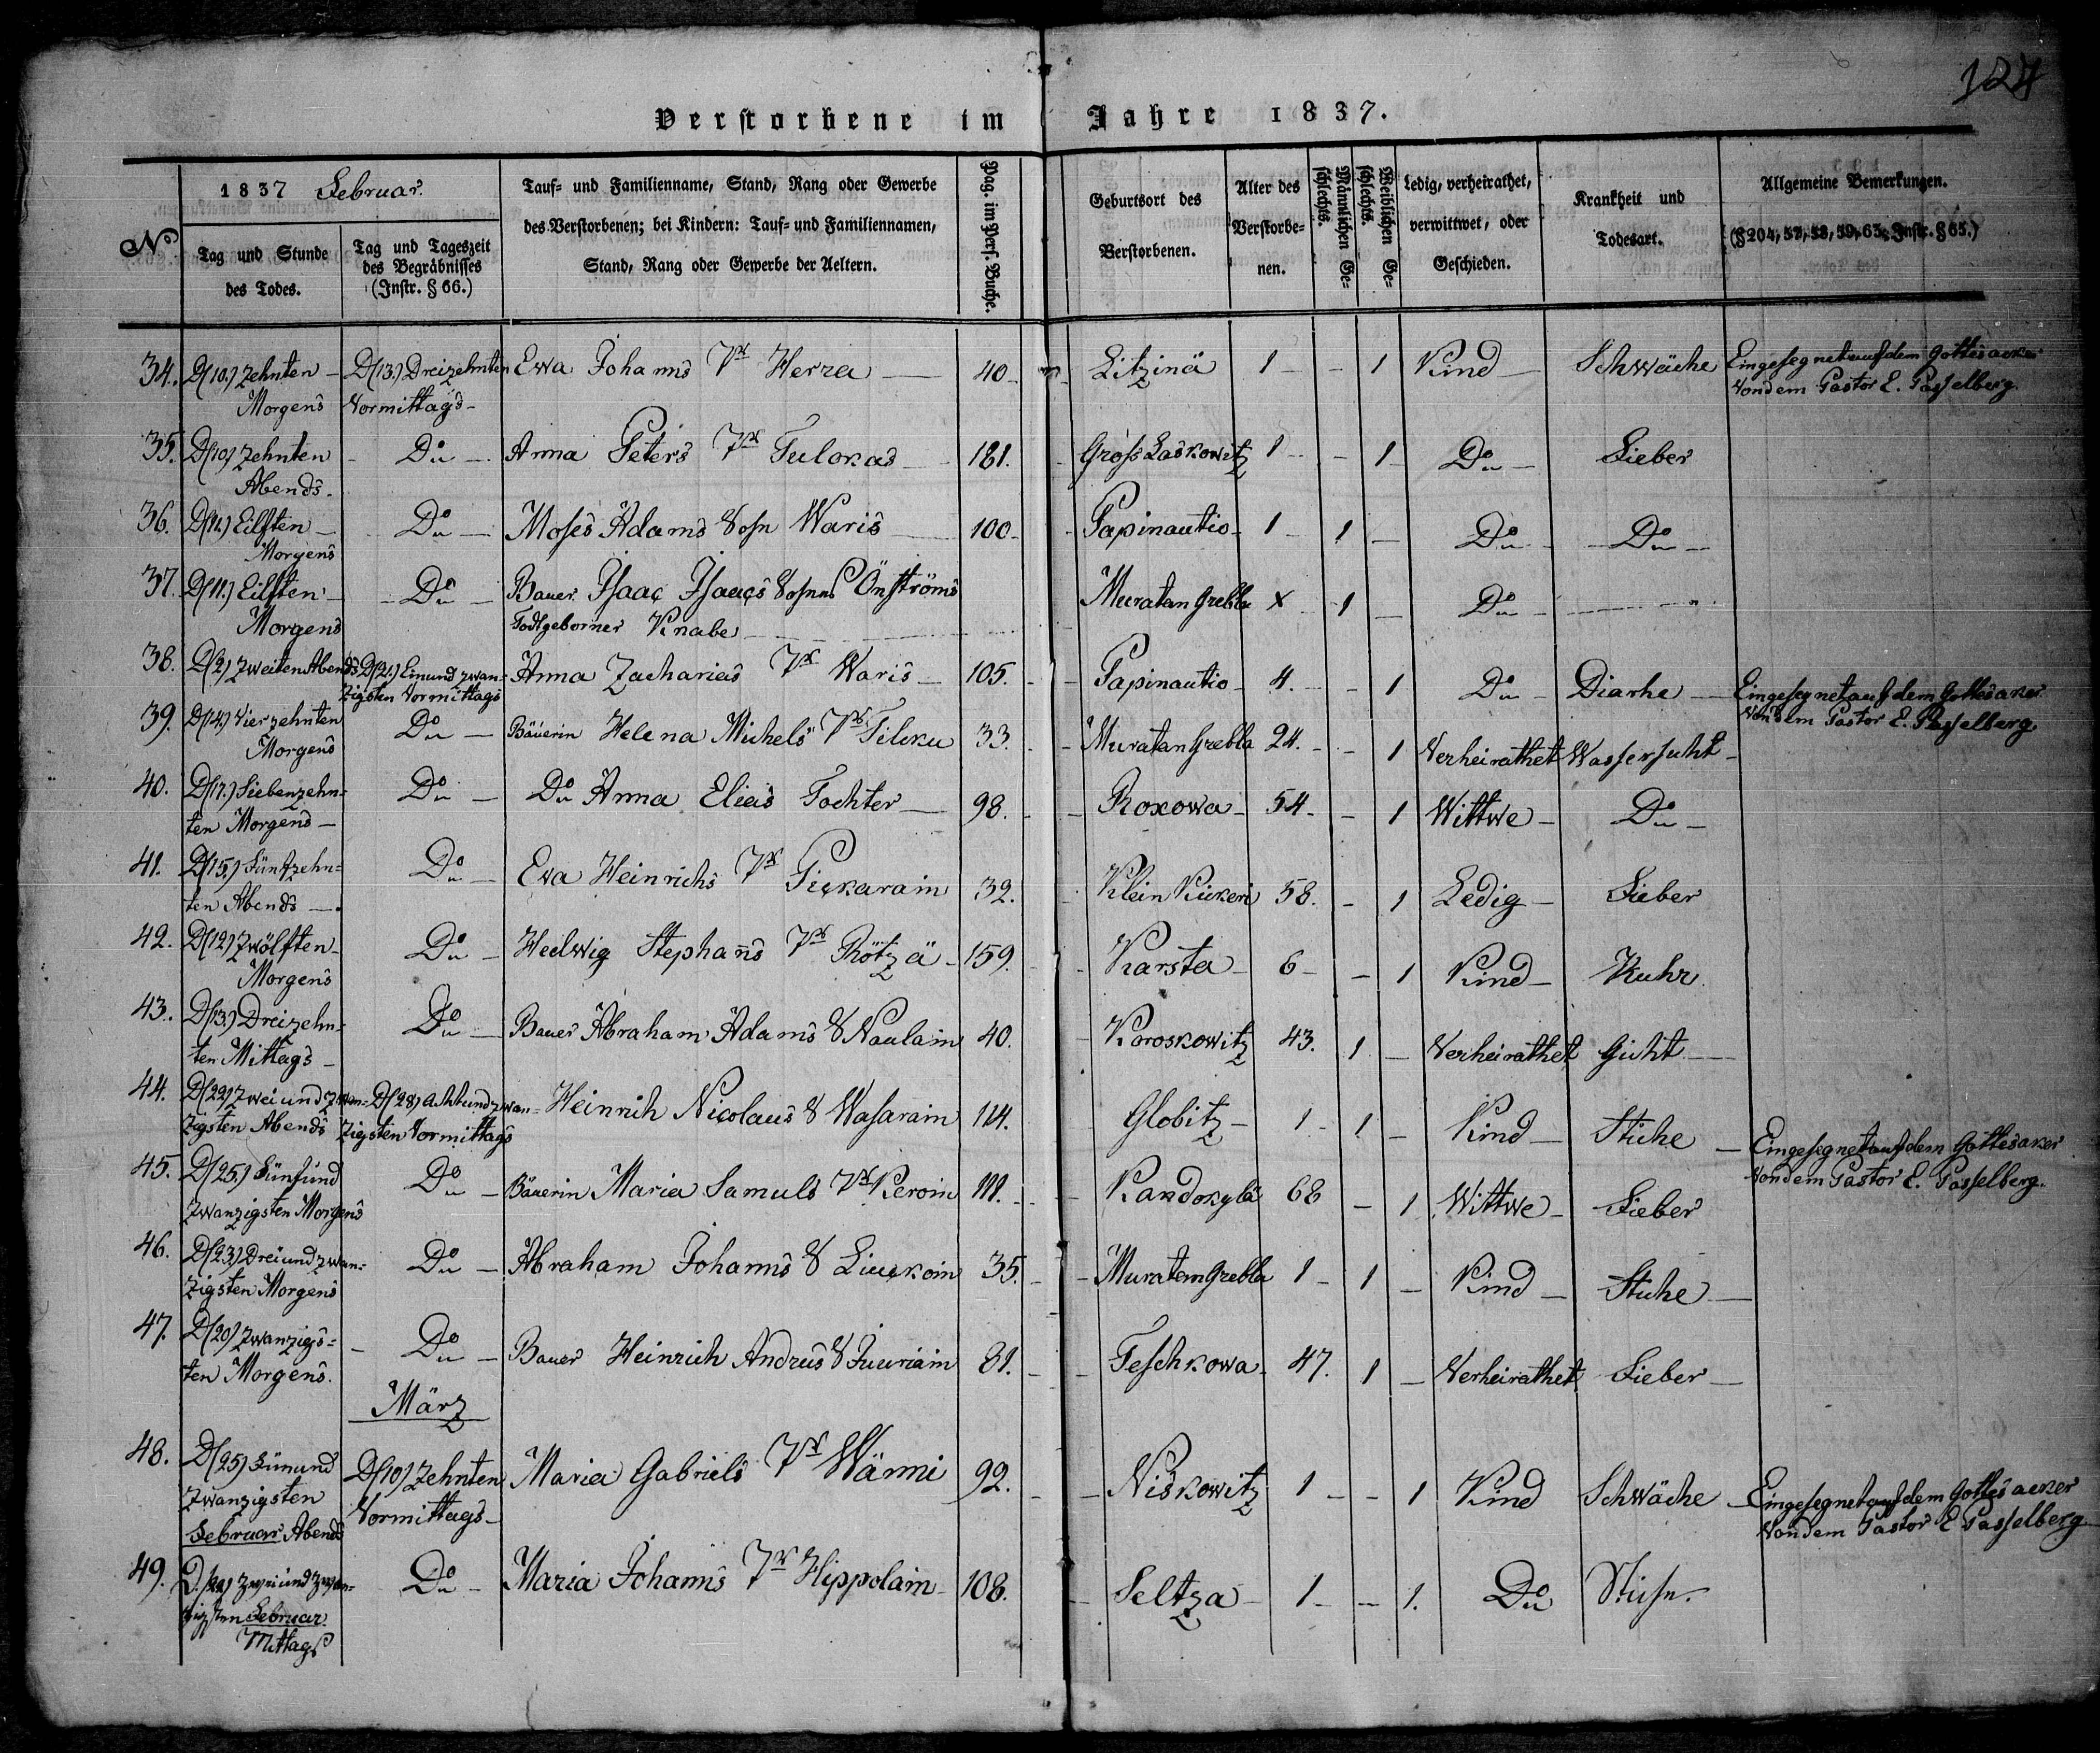 124
Verstorbene im Jahre 1837.
No
1837 Februar.
Tag und Stunde des Todes.
Tag und Tageszeit des Begräbnisses (Instr. § 66.)
Tauf- und Familienname, Stand, Rang oder Gewerbe
des Verstorbenen; bei Kindern: Tauf- und Familiennamen,
Stand, Rang oder Gewerbe der Aeltern.
Pag. im Pers. Buche.
Geburtsort des Verstorbenen.
Alter des Verstorbenen.
Männlichen Geschlechts.
Weiblichen Geschlechts.
Ledig, verheirathet, verwittwet, oder Geschieden.
Krankheit und Todesart.
Allgemeine Bemerkungen.
(§ 204, 57, 58, 59, 63. Instr. § 65.)
34. D(10.) zehnten – D(13.) Dreizehnten Ewa Johanns Tr Herra – 40 – Litzinä 1 – – 1 Kind – Schwäche Eingesegnet auf dem Gottesacker
Morgens Vormittags – von dem Pastor E. Passelberg.
35. D(10) zehnten – Do – Anna Peters Tr Tulokas – 181. Gross Laskowitz 1 – – 1 – Do – Fieber
Abends.
36. D(11.) Eilften – Do – Moses Adams Sohn Waris – 100 – Papinautio – 1 – 1 – Do – Do –
Morgens
37. D(11.) Eilften – Do – Bauer Isaac Isaacs Sohnes Önströms Muratan Grebla x – 1 – Do –
Morgens Todtgeborner Knabe –
38. D(2) zweiten Abends D(21.) Einundzwan- Anna Zacharias Tr Waris – 105. – Papinautio – 4. – – 1 Do – Diarhe – Eingesegnet auf dem Gottesaker
zigsten Vormittags von dem Pastor E. Passelberg
39. D(14.) vierzehnten Do – Bäuerin Helena Michels Tr Tileku 33. – Muratan Grebla 24. – – 1 Verheirathet Wassersucht –
Morgens
40. D(17.) Siebenzehn- Do – Do Anna Elias Tochter – 98. – Roxowa – 54 – – 1 Wittwe – Do –
ten Morgens –
41. D(15.) Fünfzehn- Do – Ewa Heinrichs Tr Pickarain 32. Klein Kickeri 58. – 1 Ledig – Fieber
ten Abends –.
42. D(12) zwölften – Do – Hedwig Stephanns Tr Rötzä – 159. – Karsta – 6 – – 1 Kind – Ruhr.
Morgens
43. D(13.) Dreizehn- Do – Bauer Abraham Adams S Naulain 40. Koroskowitz 43. 1 – Verheirathet Gicht –
ten Mittags –
44. D(22) zweiundzwan- D(28) Achtundzwan- Heinrich Nicolaus S Wasarain 114. Globitz – 1 – 1 – Kind – Stiche – Eingesegnet auf dem Gottesaker
zigsten Abends zigsten Vormittags von dem Pastor E. Passelberg.
45. D(25.) Fünfund Do – Bäuerin Maria Samuls Tr Keroin 111. – Kandokylä 68 – 1 Wittwe – Fieber
zwanzigsten Morgens
46. D(23) Dreiundzwan- Do – Abraham Johanns S Liuckoin 35. – Muratan Grebla 1 – 1 – Kind – Stiche –
zigsten Morgens
47. D(20) zwanzigs- – Do – Bauer Heinrich Andrus S Juuriain 81. – Teschkowa – 47. 1 – Verheirathet Fieber –
ten Morgens.
März
48. D(25) Fünfund D(10) zehnten Maria Gabriels Tr Wänni 92. – Niskowitz 1 – – 1 Kind Schwäche – Eingesegnet auf dem Gottes acker
zwanzigsten Vormittags – von dem Pastor E Passelberg
Februar Abends
49. D. (22) zweiundzwan- Do – Maria Johanns Tr Hippolain – 108. – Seltza – 1 – – 1. Do Stiche.
zigsten Februar
Mittags